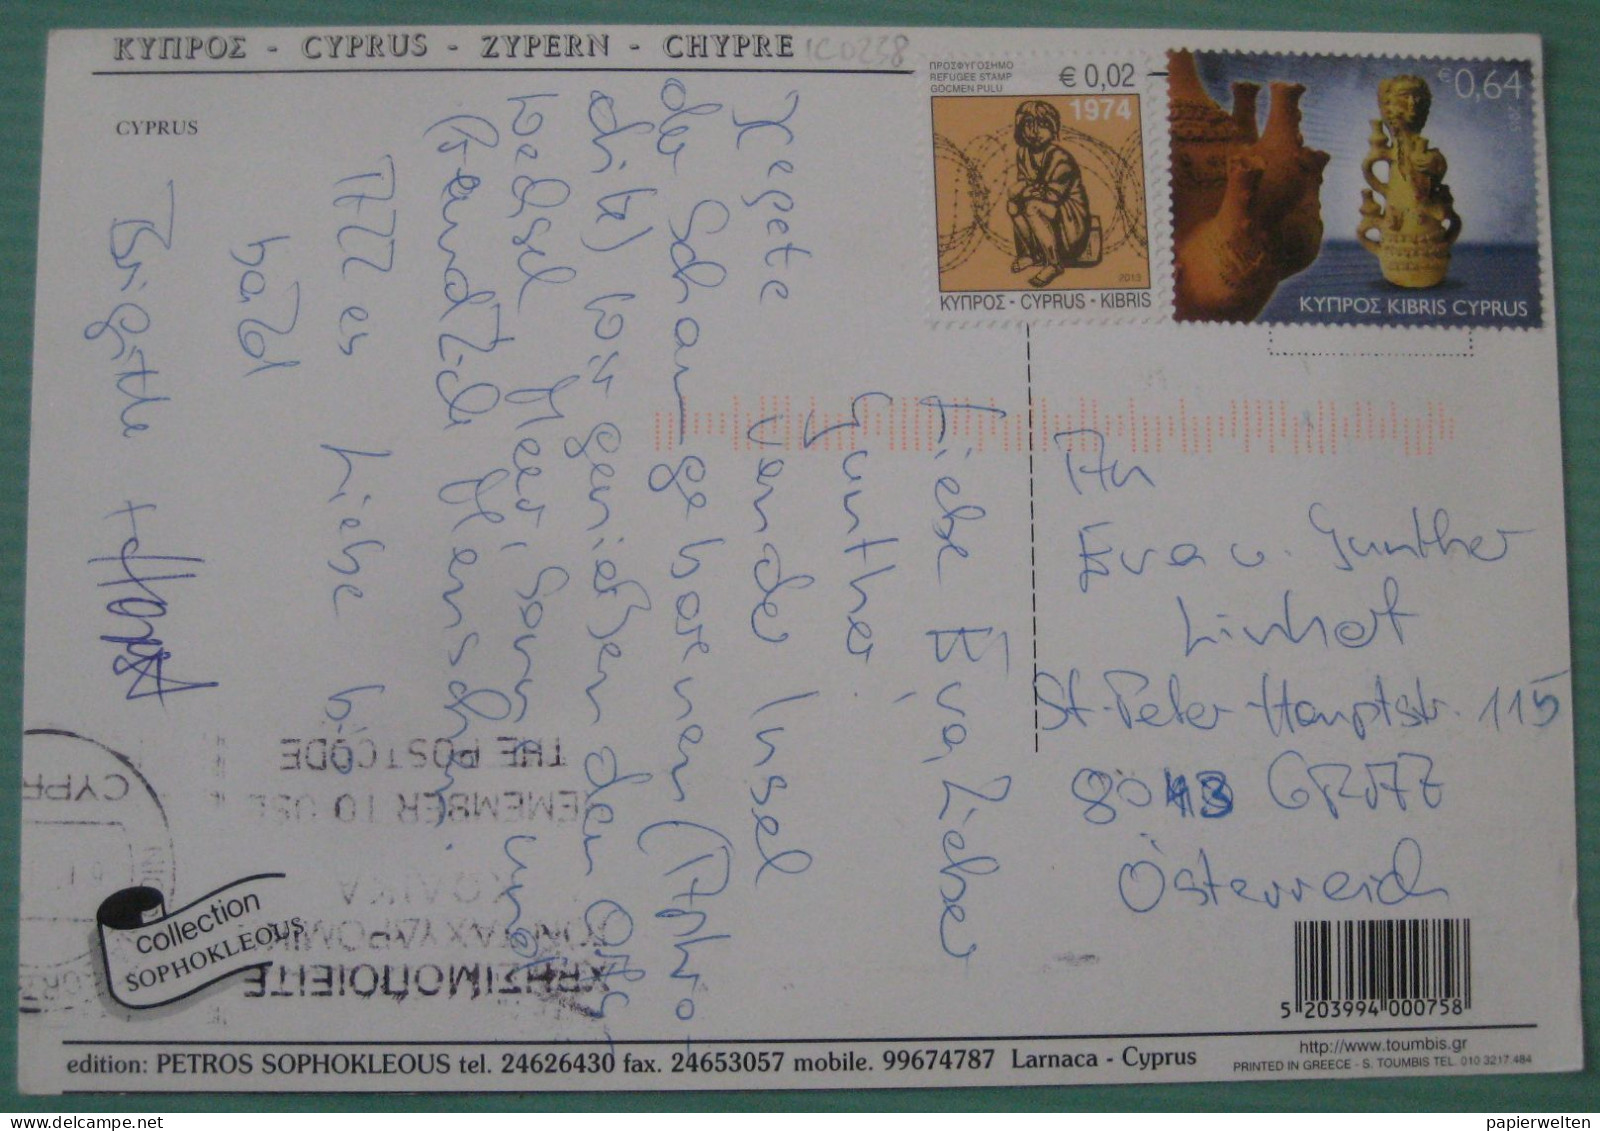 ΚΥΠΡΟΣ - CYPRUS - ZYPERN - CHYPRE
1C0258
CYPRUS
ΠΡΟΣΦΥΓΟΣΗΜΟ
REFUGEE STAMP
GÖCMEN PULU
€ 0,02
1974
2013
ΚΥΠΡΟΣ - CYPRUS - KIBRIS
€0,64
2015
ΚΥΠΡΟΣ KIBRIS CYPRUS
Liebe Eva, Lieber
Gunther
von der Insel
der Schaumgeborenen (Aphro-
dite) wir genießen den Orts-
wechsel Meer, Sonne und
freundliche Menschen.
Alles Liebe bis
bald
Brigitte +
An
Eva u. Gunther
Linhot
St. Peter-Hauptstr. 115
8043 GRAZ
Österreich
THE POSTCODE
REMEMBER TO USE
ΚΩΔΙΚΑ
ΤΟΝ ΤΑΧΥΔΡΟΜΙΚΟ
ΧΡΗΣΙΜΟΠΟΙΕΙΤΕ
collection
SOPHOKLEOUS
5 203994 000758
edition: PETROS SOPHOKLEOUS tel. 24626430 fax. 24653057 mobile. 99674787 Larnaca - Cyprus
http://www.toumbis.gr
PRINTED IN GREECE - S. TOUMBIS TEL. 010 3217 484
papierwelten